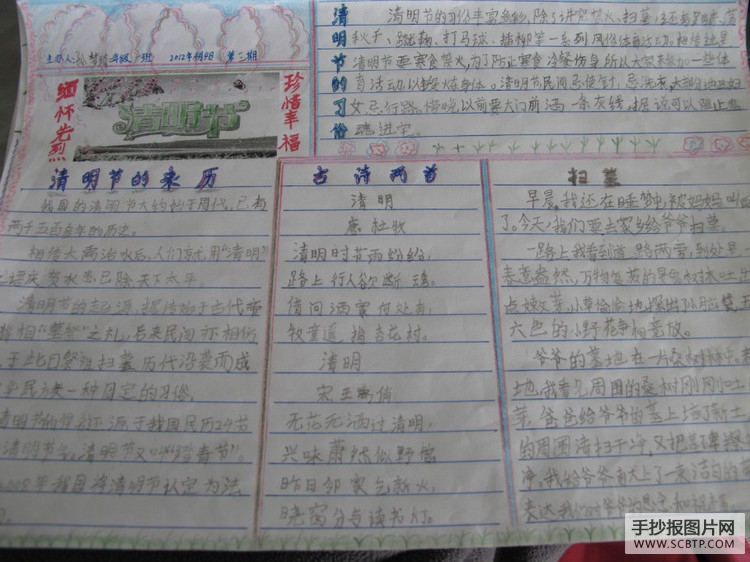 主办人: 年级一班 2012年4月4日 第三期
缅怀先烈
清明节
珍惜幸福
清明节的习俗
清明节的习俗丰富多彩,除了讲究禁火、扫墓,还有踏青、荡
秋千、蹴鞠、打马球、插柳等一系列风俗体育活动。相传这是
清明节要寒食禁火,为了防止寒食冷餐伤身,所以大家来参加一些体
育活动,以锻炼身体。清明节民间忌使针,忌洗衣,大部分地区妇
女忌行路。傍晚以前要大门前洒一条灰线,据说可以阻止鬼
魂进宅。
清明节的来历
我国的清明节大约始于周代,已有
两千五百多年的历史。
相传大禹治水后,人们就用“清明”
之语庆贺水患已除天下太平。
清明节的起源,据传始于古代帝
将相“墓祭”之礼,后来民间亦相仿
于此日祭祖扫墓历代沿袭而成
民族一种固定的习俗。
清明节 源于我国农历24节
清明节气,清明节又叫“踏青节”
年我国将清明节认定为法
古诗两首
清明
唐 杜牧
清明时节雨纷纷,
路上行人欲断魂。
借问酒家何处有,
牧童遥指杏花村。
清明
宋 王禹偁
无花无酒过清明,
兴味萧然似野僧。
昨日邻家乞新火,
晓窗分与读书灯。
扫墓
早晨,我还在睡梦中,被妈妈叫
了。今天,我们要去家乡给爷爷扫墓。
一路上我看到道路两旁,到处是
春意盎然,万物复苏的景象树木吐
点嫩芽,小草偷偷地探出
六色的小野花争相怒放。
爷爷的墓地在一片桑树林中,
地,我看见周围的桑树刚刚吐
芽,爸爸给爷爷的墓上培了新土
的周围清扫干净,又把
净,我给爷爷献上了一束洁白的
表达我们对爷爷的
手抄报图片网
WWW.SCBTP.COM